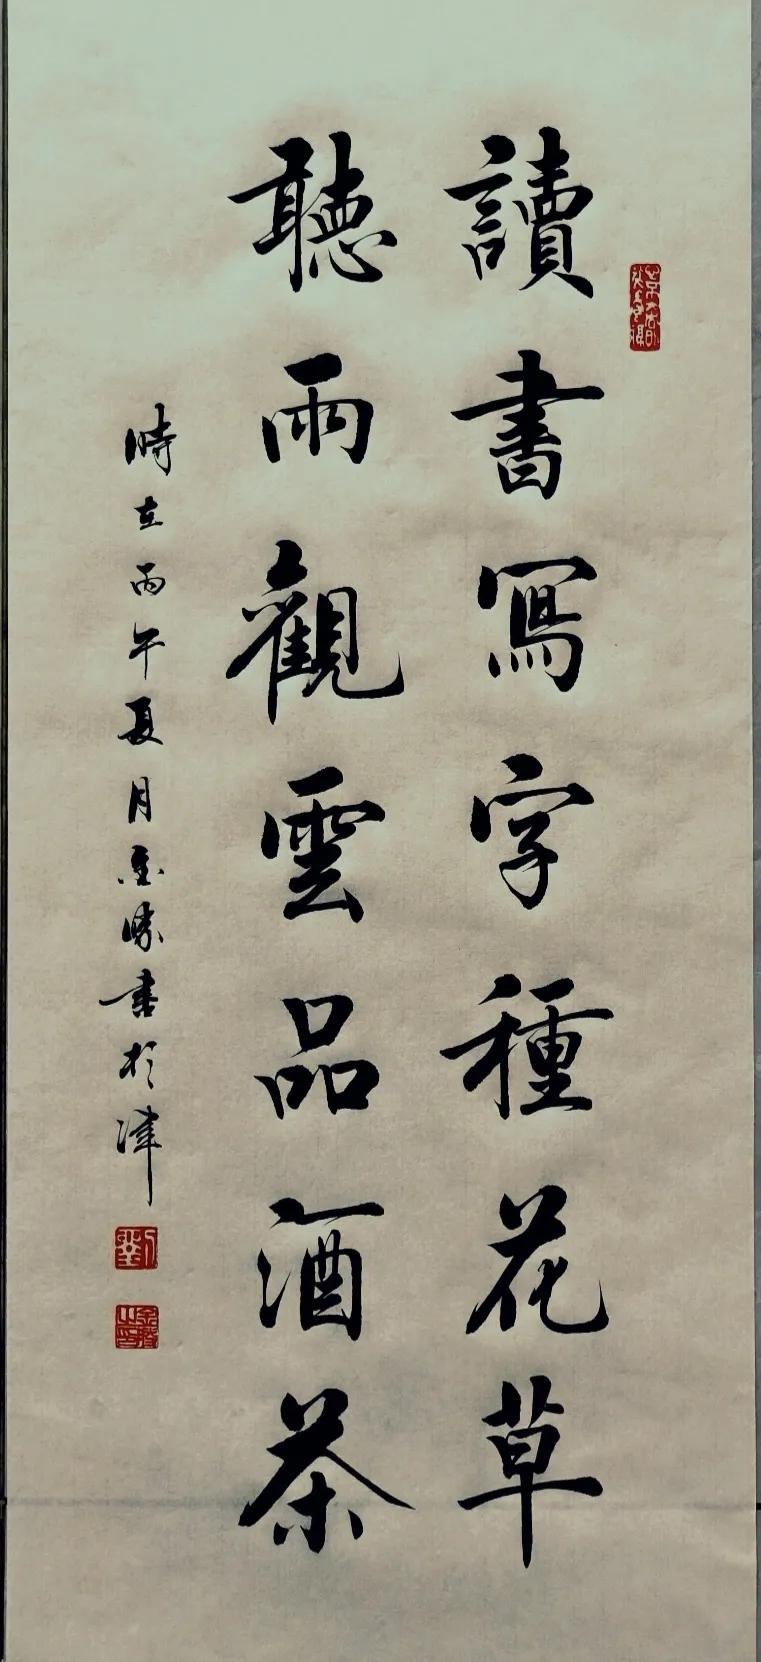 讀書寫字種花草
聽雨觀雲品酒茶
時在丙午夏月金勝書於津